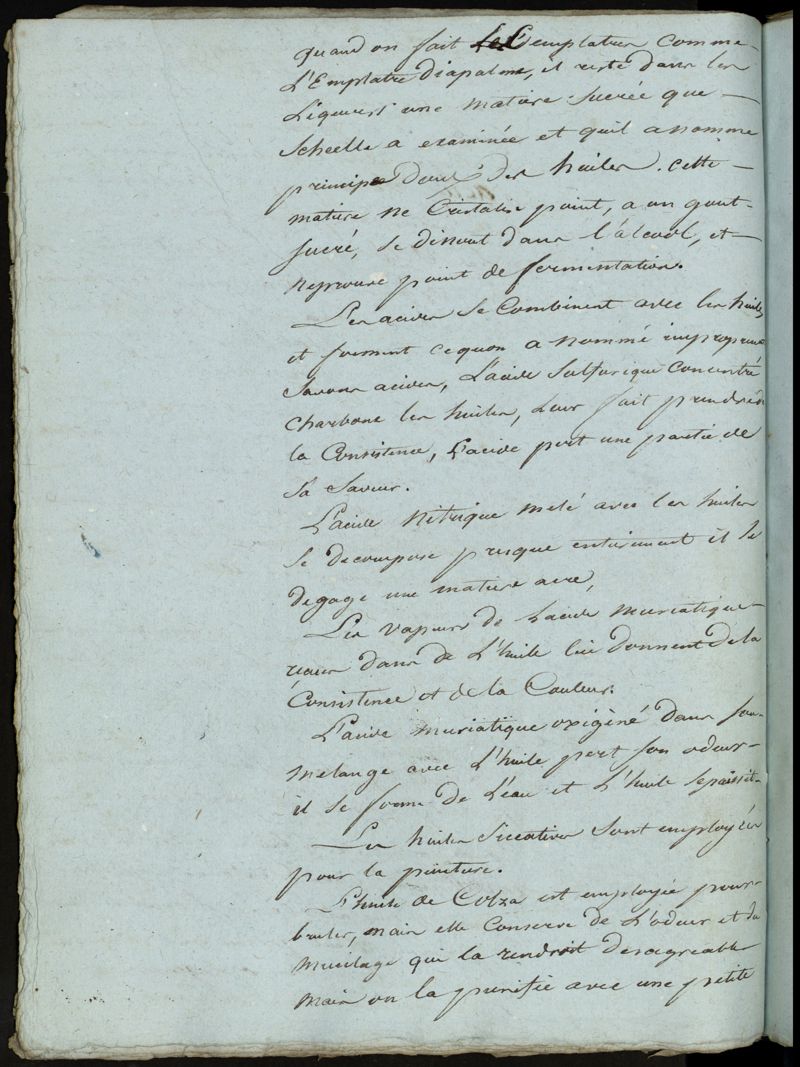 quand on fait les Lemplatres comme
L'Emplatre diapalme, il reste dans les
Liqueurs une matiere sucrée que
Scheelle a examinée et quil a nommé
principe doux des huiles. cette
matiere ne Cristalise point, a un gout
sucré, se dissout dans l'álcool, et
neprouve point de fermentation.
Les acides se Combinent avec les huiles
et forment cequon a nommé
Savons acides, L'acide Sulfurique Concentré
charbone les huiles, leur fait prendre de
la Consistence, L'acide pert une partie de
sa Saveur.
L'acide Nitrique melé avec les huiles
se decompose presque entierement il se
degage une matiere acre,
Les vapeurs de Lacide muriatique
recues dans de L'huile lui donnent de la
Consistence et de la Couleur.
L'acide muriatique oxigèné dans son
melange avec L'huile pert son odeur
il se forme de L'eau et L'huile sepaissit
Les huiles Siccatives sont employées
pour la peinture.
L'huile de Colza est employée pour
bruler, mais elle Conserve de L'odeur et du
mucilage qui la rendroit desagreable
mais on la purifie avec une petite